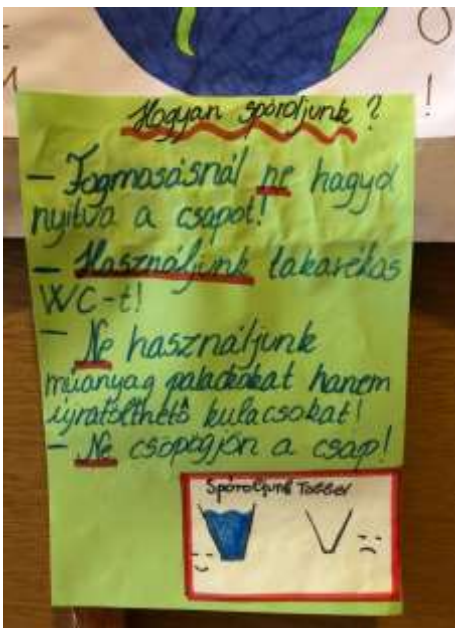 !
Hogyan spóroljunk?
– Fogmosásnál ne hagyd
nyitva a csapot!
– Használjunk takarékos
WC-t!
– Ne használjunk
műanyag palackokat hanem
újratölthető kulacsokat!
– Ne csöpögjön a csap!
Spóroljunk